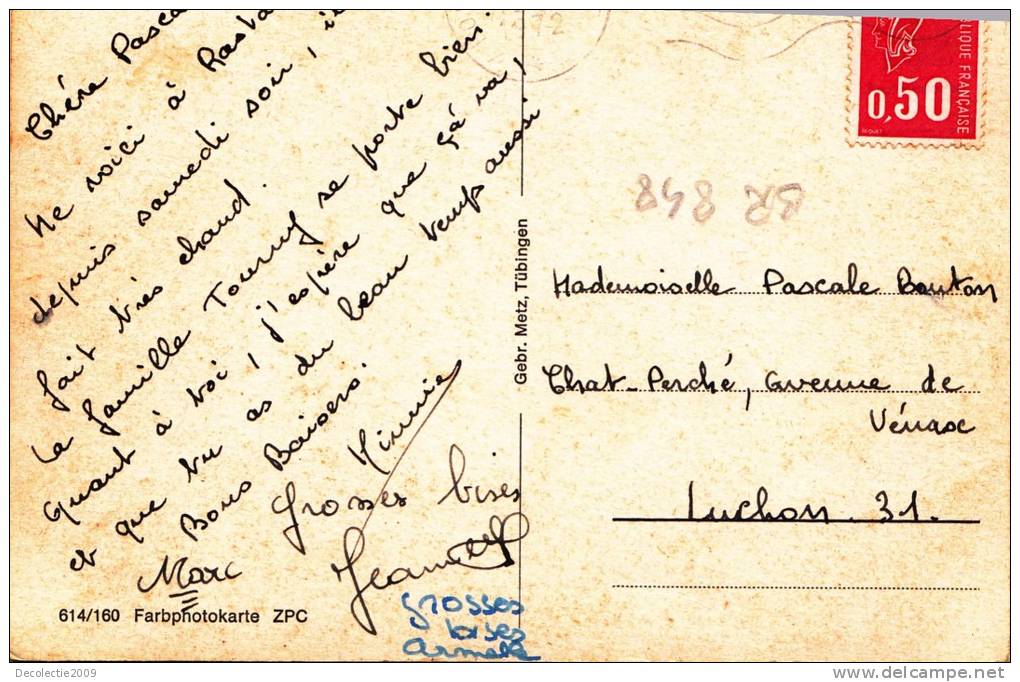 Chère Pasca
Me voici à Rasta
depuis samedi soir, i
fait très chaud.
La famille Tourny se porte bien.
Quant à toi, j'espère que ça va,
et que tu as du beau temps aussi
Bons Baisers.
Minnie
Grosses bises
Marc
Grosses
bises
Armelle
614/160 Farbphotokarte ZPC
Gebr. Metz, Tübingen
72
0,50
BLIQUE FRANÇAISE
BR 848
Mademoiselle Pascale Bouton
Chat-Perché, Avenue de
Vénasc
Luchon 31.
Decolectie2009
www.delcampe.net